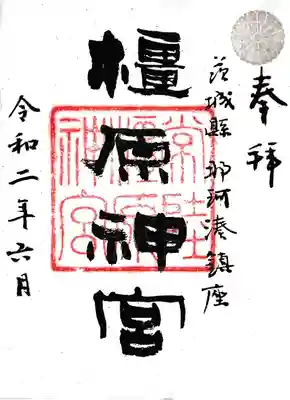 奉拜
茨城縣 那珂湊鎮座
橿原神宮
令和二年六月